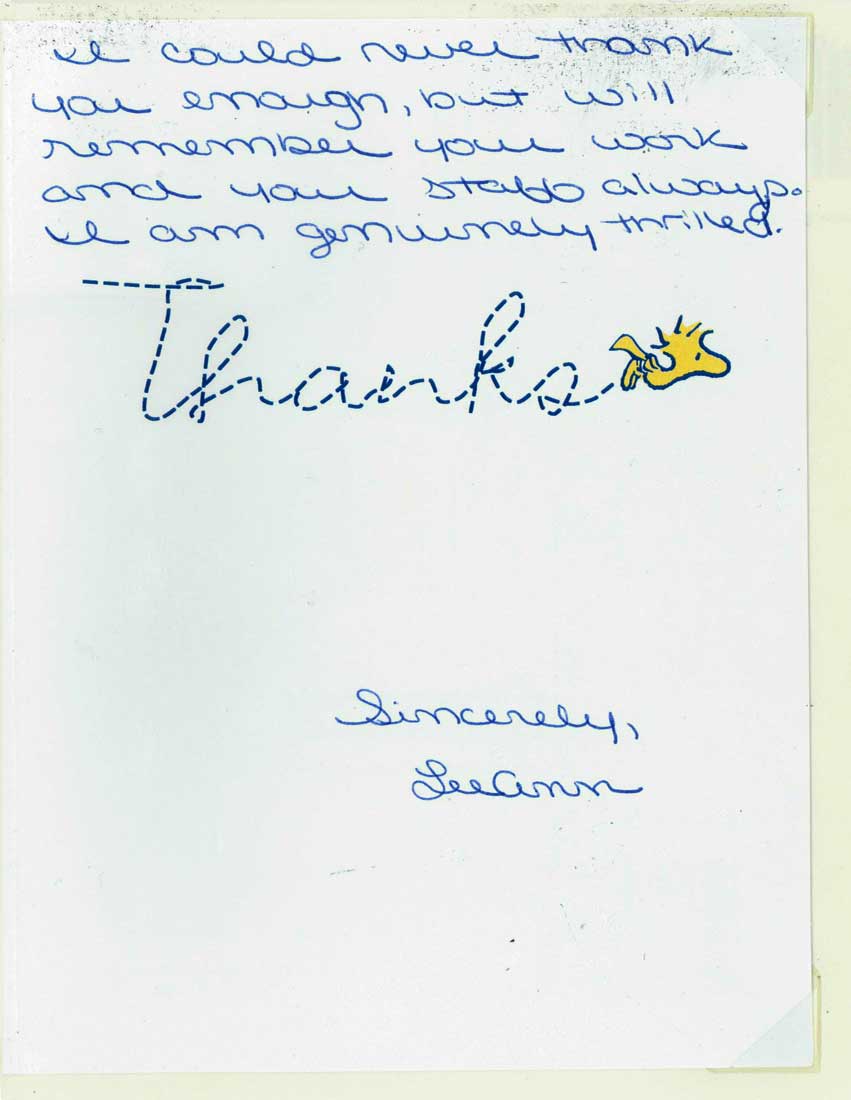 I could never thank
you enough, but will
remember your work
and your staff always.
I am genuinely thrilled.
Thanks
Sincerely,
LeeAnn